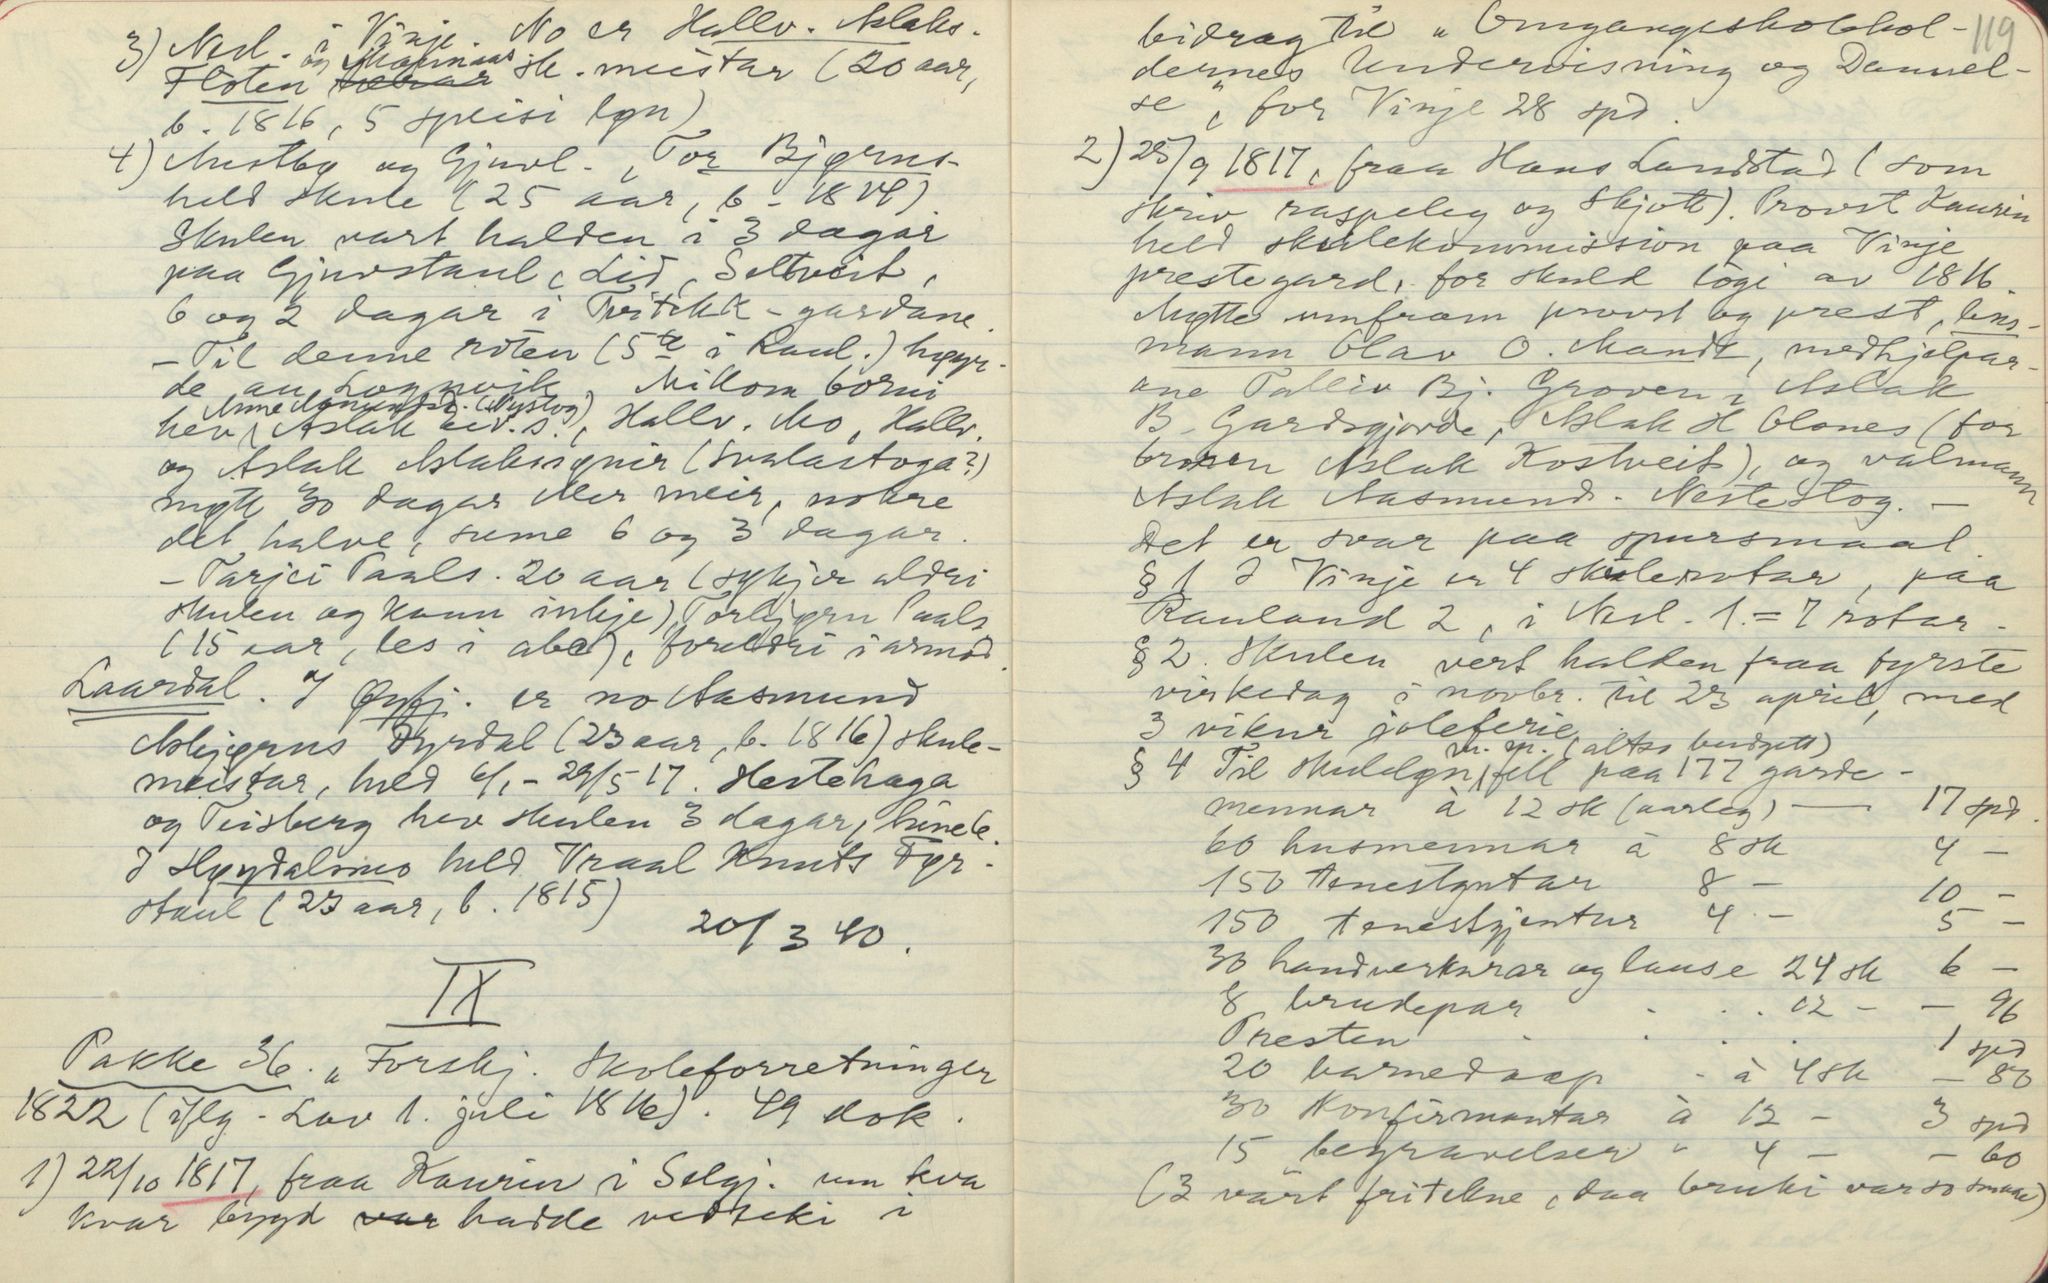 3) Nesl. i Vinje. No er Hallv. Aslaks.
Floten og sk.meistar (20 aar,
b. 1816, 5 speisi løn)
4) Mustbø og Gjuvl., Tor Bjørns.
held skule (25 aar, b. 1814)
Skulen vart halden i 3 dagar
paa Gjuvstaul, Lid, Seltveit,
6 og 2 dagar i Tveitekk-gardane.
- Til denne roten (5te i Raul.) høyr-
de au Lognvik. Millom borni
Anne Aamundsd. (Nystog)
hev Aslak eid.s., Hallv. Mo, Hallv.
og Aslak Aslaksynir (Svalastoga?)
møtt 30 dagar eller meir, nokre
det halve, sume 6 og 3 dagar.
- Tarjei Paals. 20 aar (søkjer aldri
skulen og kann inkje), Torbjørn Paals
(15 aar, les i abc), foreldri i armod.
Laardal. I Øyfj. er no Aasmund
Asbjørns Dyrdal (23 aar, b. 1816) skule-
meistar, held 6/1 - 29/5 17. Hestehaga
og Teisberg hev skulen 3 dagar,
I Høydalsmo held Vraal Knuts Fyr-
staul (23 aar, b. 1815)
20/3 40.
IX
Pakke 36. „Forskj. Skoleforretninger
1822 (iflg. Lov 1. juli 1816). 49 dok.
1) 22/10 1817, fraa Kaurin i Selgj. um kva
kvar bygd var hadde vedteki i
119
bidrag til „Omgangsskolehol-
dernes Undervisning og Dannel-
se“, for Vinje 28 spd.
2) 25/9 1817, fraa Hans Landstad (som
skriv raspeleg og skjott). Provst Kaurin
held skulekommission paa Vinje
prestegard, for skuld logi av 1816.
Møtte umfram provst og prest, lens-
mann Olav O. Mandt, medhjelpar-
ane Talleiv Bj. Groven, Aslak
B. Gardsgjorde, Aslak H Clones (for
broren Aslak Kostveit), og valmann
Aslak Aasmunds. Nestestog. -
Det er svar paa spursmaal.
§ 1 I Vinje er 4 skulerotar, paa
Rauland 2, i Nesl. 1. = 7 rotar.
§ 2. Skulen vert halden fraa fyrste
virkedag i novbr. til 23 april, med
3 vikur joleferie.
m. m. (altso budgett)
§ 4 Til skuleløn fell paa 177 garde-
mennar à 12 sk (aarleg) — 17 spd.
60 husmennar à 8 sk 4 -
150 tenestgutar 8 - 10 -
150 tenestgjentur 4 - 5 -
30 handverkarar og lause 24 sk 6 -
8 brudepar . . . 12 - - 96
Presten . . . . 1 spd
20 barnedaap - à 4 sk - 80
30 Konfirmantar à 12 - 3 spd
15 begravelser " 4 - - 60
(3 vart fritekne, daa bruki var so smaa)